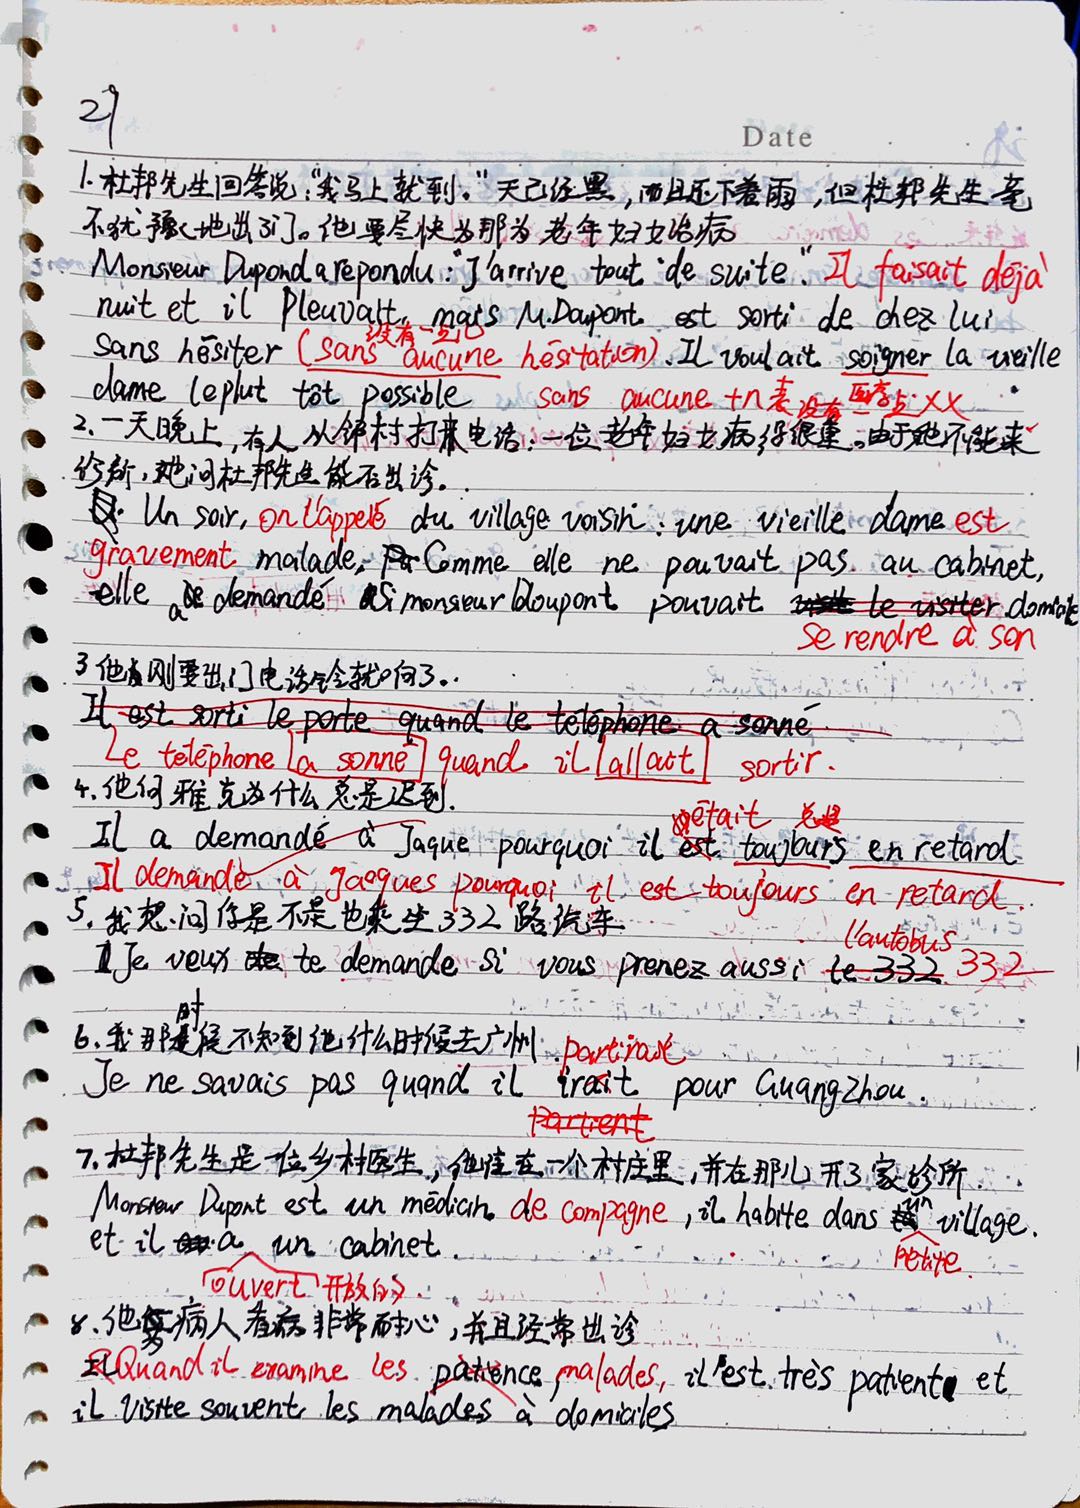 29
Date
1. 杜邦先生回答说:"我马上就到。"天已经黑,而且还下着雨,但杜邦先生毫
不犹豫地出了门。他要尽快为那为老年妇女治病
Monsieur Dupond a répondu: "J'arrive tout de suite." Il faisait déjà
nuit et il pleuvait, mais M. Daupont est sorti de chez lui
没有一点儿
sans hésiter (sans aucune hésitation). Il voulait soigner la vieille
医疗
dame leplut tôt possible sans aucune +n表没有一点XX
2. 一天晚上,有人从邻村打来电话,一位老年妇女病得很重。由于她不能来
诊所,她问杜邦先生能否出诊。
Un soir, on l'appelé du village voisin: une vieille dame est
gravement malade, Comme elle ne pouvait pas au cabinet,
elle a demandé si monsieur Doupont pouvait le visiter domicile
se rendre à son
3 他刚要出门电话铃就响了.
Il est sorti le porte quand le téléphone a sonné
Le téléphone a sonné quand il allait sortir.
4. 他问雅克为什么总是迟到.
était 总是
Il a demandé à Jaque pourquoi il est toujours en retard
Il demande à Jacques pourquoi il est toujours en retard.
5. 我想问你是不是也乘坐332路汽车
l'autobus
Je veux te demande si vous prenez aussi le 332 332
时
6. 我那候不知到他什么时候去广州.
partirait
Je ne savais pas quand il irait pour GuangZhou.
partient
7. 杜邦先生是一位乡村医生,他住在一个村庄里,并在那儿开了家诊所.
Monsieur Dupont est un médicin de compagne, il habite dans un village.
petite
et il a un cabinet.
ouvert 开放的
8. 他给病人看病非常耐心,并且经常出诊
Quand il examine les patience malades, il est très patient et
il visite souvent les malades à domiciles